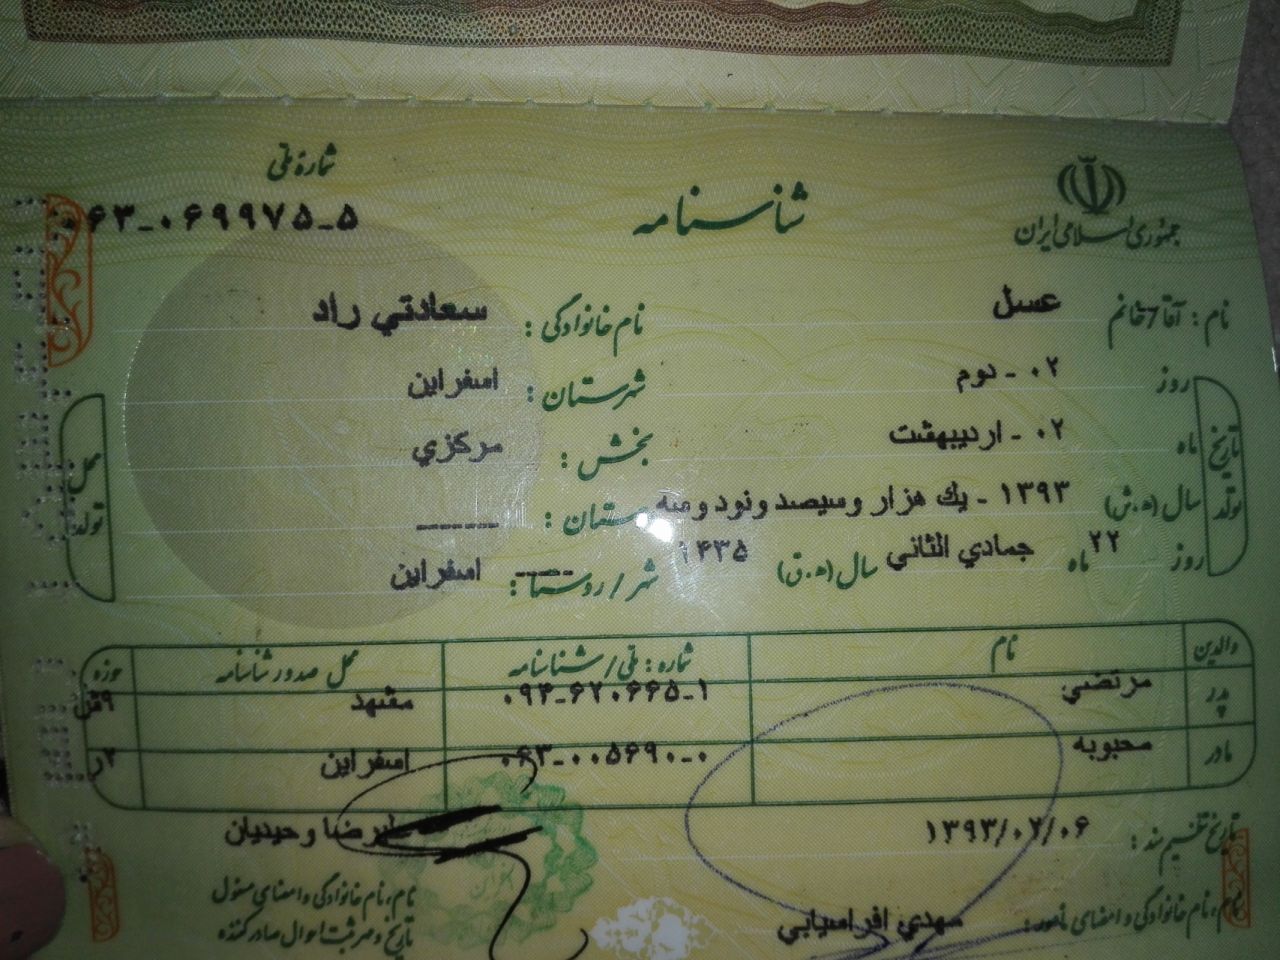 جمهوری اسلامی ایران
شناسنامه
شماره ملی
۰۶۳-۰۶۹۹۷۵-۵
نام : آقا/خانم عسل
نام خانوادگی : سعادتي راد
تاریخ تولد
روز ۰۲ - دوم
ماه ۰۲ - ارديبهشت
سال (ه.ش) ۱۳۹۳ - يك هزار وسيصد ونود وسه
روز ۲۲ ماه جمادي الثاني سال (ه.ق) ۱۴۳۵
محل تولد
شهرستان : اسفراين
بخش : مركزي
دهستان : ------
شهر / روستا : ----- اسفراين
والدین نام شماره : ملی / شناسنامه محل صدور شناسنامه حوزه
پدر مرتضي ۰۹۴-۶۲۰۶۶۵-۱ مشهد ۹ق
مادر محبوبه ۰۶۳-۰۰۵۶۹۰-۰ اسفراين ۲ر
تاریخ تنظیم سند : ۱۳۹۳/۰۲/۰۶
نام، نام خانوادگی و امضای مأمور : مهدي افراسيابي
عليرضا وحيديان
نام، نام خانوادگی و امضای مسئول
تاریخ و مهر ثبت احوال صادر کننده